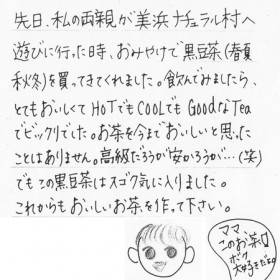 先日、私の両親が美浜ナチュラル村へ
遊びに行った時、おみやげで黒豆茶(春夏
秋冬)を買ってきてくれました。飲んでみましたら、
とてもおいしくてHOTでもCOOLでもGoodなTea
でビックリでした。お茶を今までおいしいと思った
ことはありません。高級だろうが安かろうが…(笑)
でもこの黒豆茶はスゴク気に入りました。
これからもおいしいお茶を作って下さい。
ママ
このお茶
ボク
大好きだよ